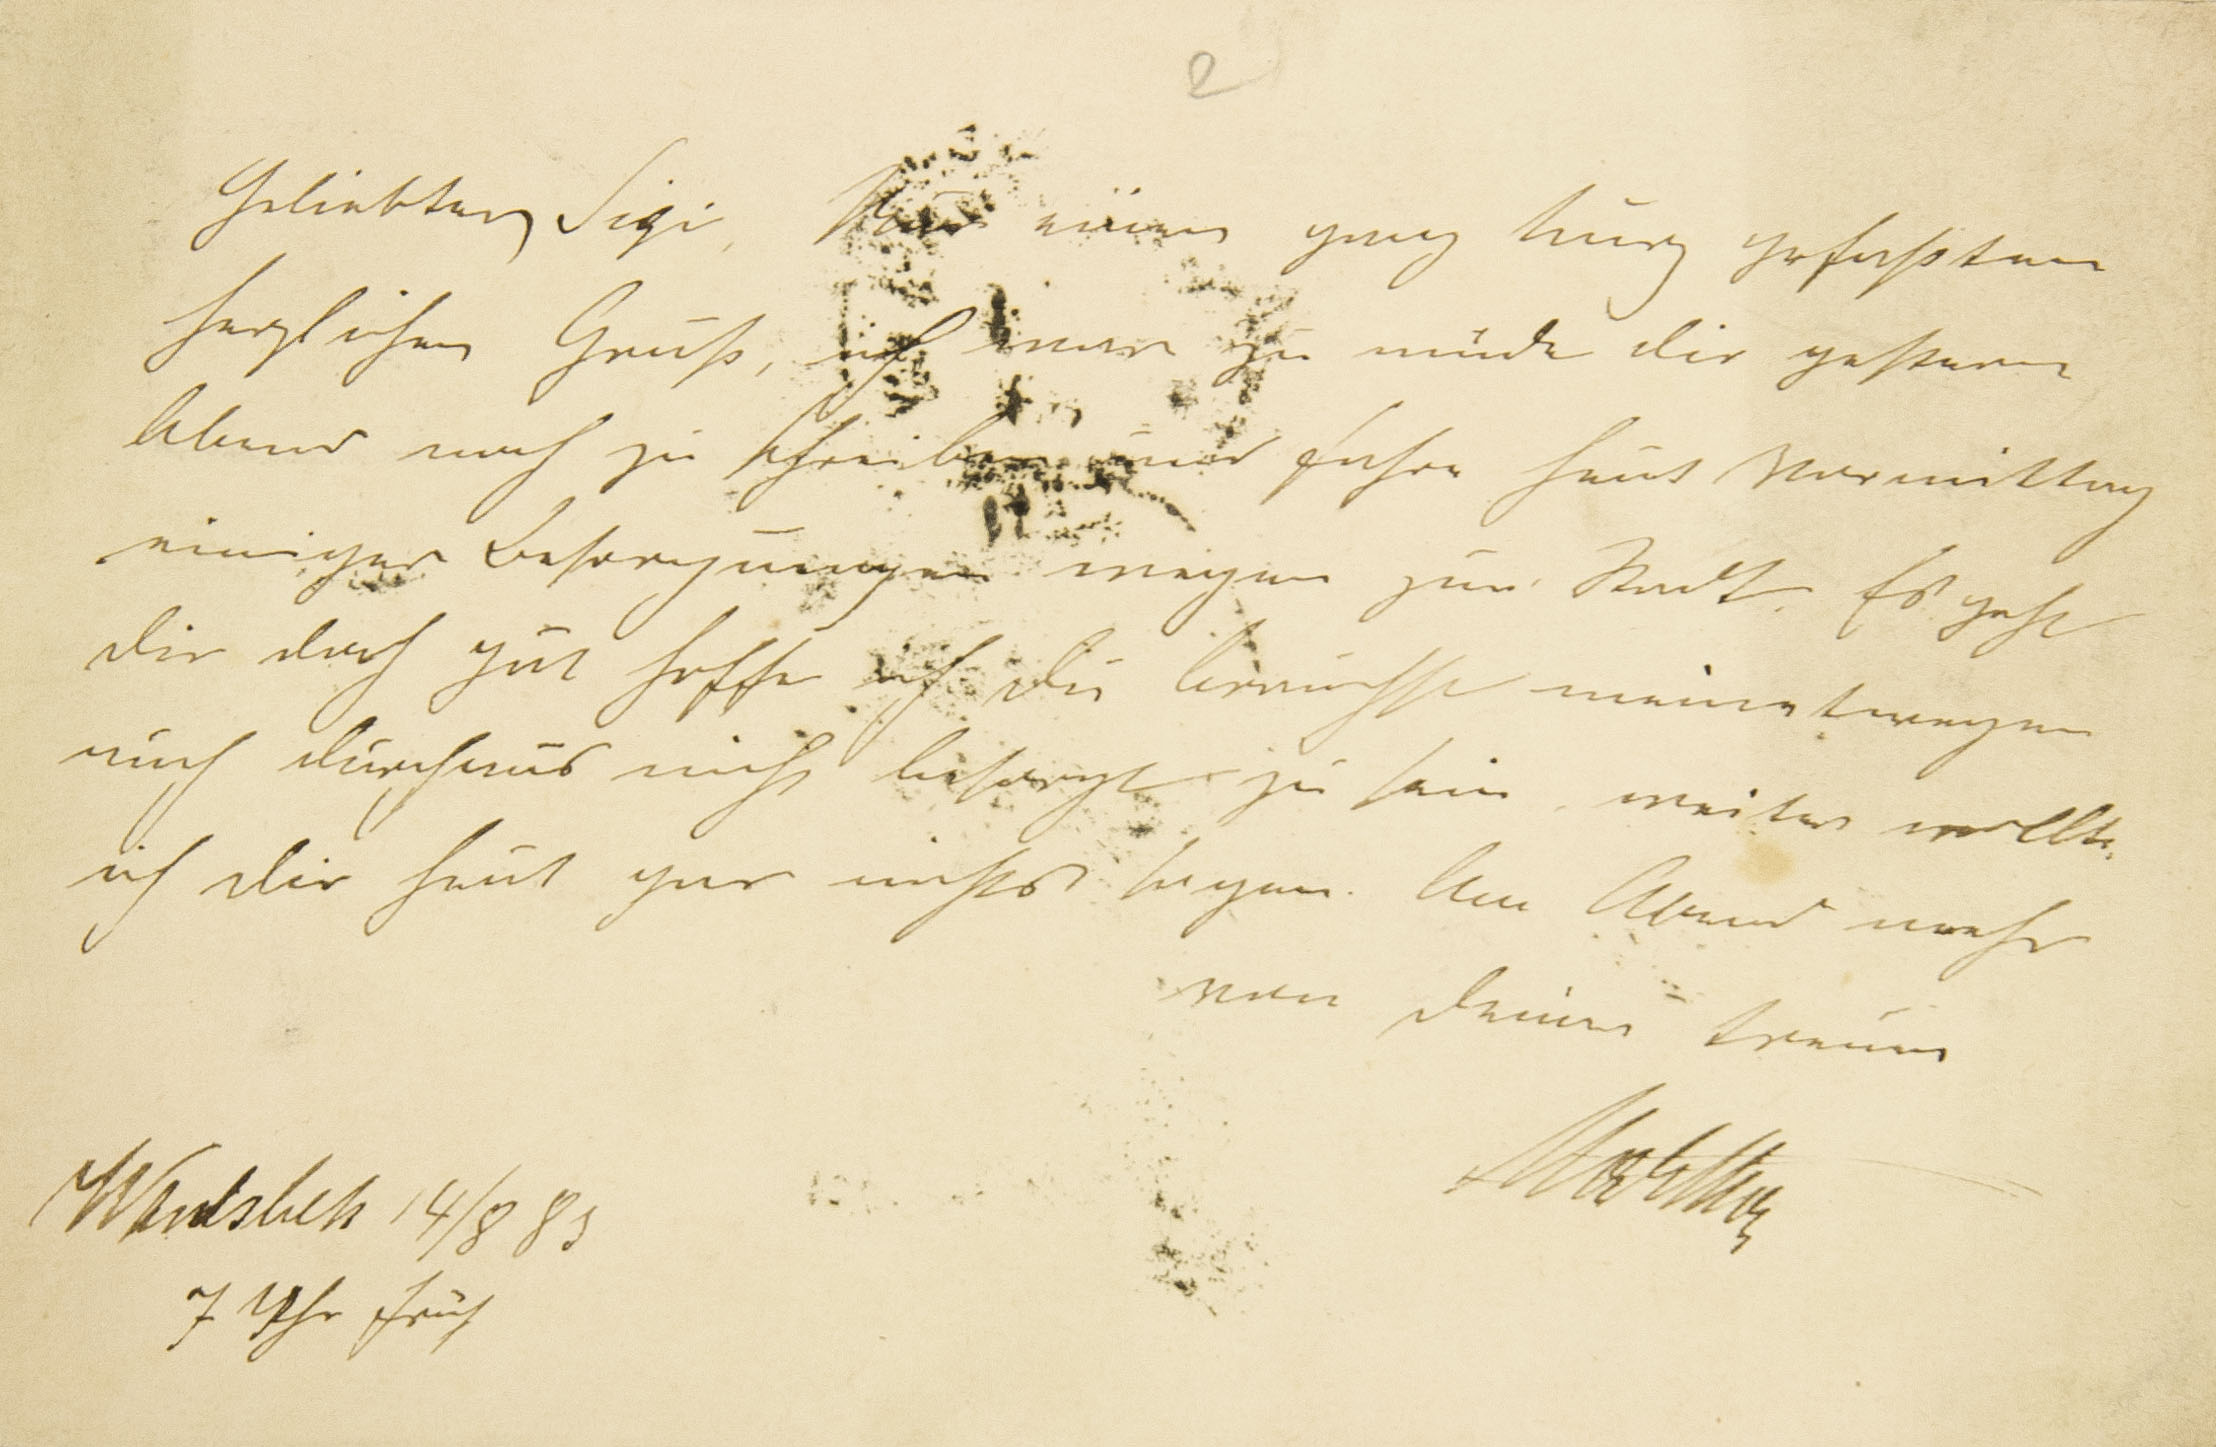 2
Geliebter Sigi, Nur einen ganz kurz gefaßten
herzlichen Gruß, ich war zu müde dir gestern
Abend noch zu schreiben und fahre heut Vormittag
einiger Besorgungen wegen zur Stadt. Es geht
dir doch gut hoffe ich du brauchst meinetwegen
auch durchaus nicht besorgt zu sein, weiter wollte
ich dir heut gar nichts sagen. Am Abend mehr
von deiner treuen
Wandsbek 14/8 85
7 Uhr früh